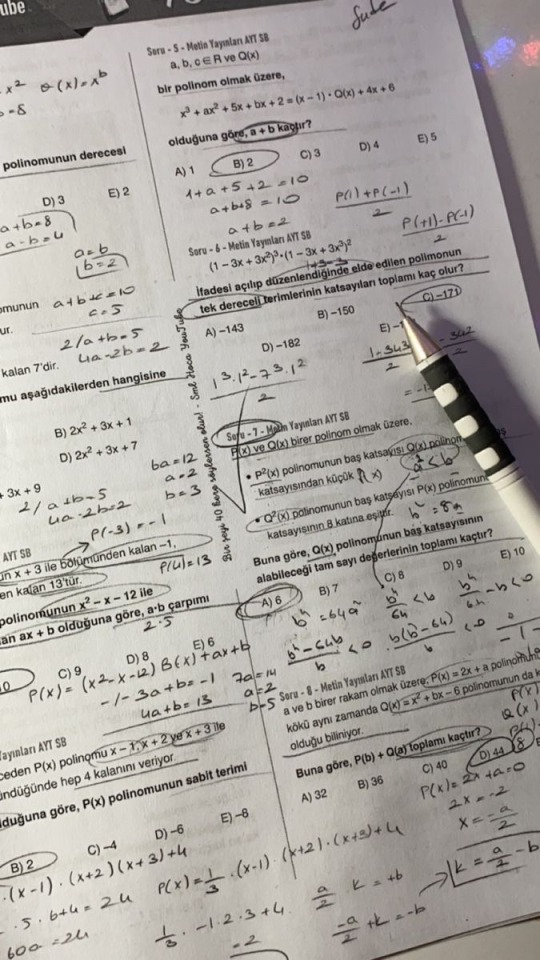 ube
Şube
x² Q(x)=x^b
b=8
polinomunun derecesi
D) 3 E) 2
a+b=8
a-b=4
a=b
b=2
omunun a+b+c=10
ur. c=5
2/a+b=5
kalan 7'dir. 4a-2b=2
mu aşağıdakilerden hangisine
B) 2x² + 3x + 1
D) 2x² + 3x + 7
ba=12
+ 3x + 9 a=2
2/a+b=5 b=3
4a-2b=2
P(-3)=-1
AYT SB
ün x + 3 ile bölümünden kalan –1,
en kalan 13'tür. P(4)=13
polinomunun x² – x – 12 ile
an ax + b olduğuna göre, a·b çarpımı
2.5
C) 9 D) 8 E) 6
P(x)=(x²-x-12)B(x)+ax+b
-/-3a+b=-1 7a=14
4a+b=13 a=2
b=5
Yayınları AYT SB
eden P(x) polinomu x – 1, x + 2 ve x + 3 ile
ündüğünde hep 4 kalanını veriyor.
lduğuna göre, P(x) polinomunun sabit terimi
B) 2 C) –4 D) –6 E) –8
.(x-1).(x+2)(x+3)+4
.5.6+4=24
60a=24
P(x)=1/3.(x-1).(x+2).(x+3)+4
1/3.-1.2.3+4
=2
Bir şeyi 40 kere söylersen olur! - Sml Hoca YouTube
Soru - 5 - Metin Yayınları AYT SB
a, b, c ∈ R ve Q(x)
bir polinom olmak üzere,
x³ + ax² + 5x + bx + 2 = (x – 1) · Q(x) + 4x + 6
olduğuna göre, a + b kaçtır?
A) 1 B) 2 C) 3 D) 4 E) 5
1+a+5+2=10
a+b+8=10
a+b=2
P(1)+P(-1)/2
P(+1)-P(-1)/2
Soru - 6 - Metin Yayınları AYT SB
(1 – 3x + 3x²)³ · (1 – 3x + 3x³)²
ifadesi açılıp düzenlendiğinde elde edilen polinomun
tek dereceli terimlerinin katsayıları toplamı kaç olur?
A) –143 B) –150 C) –171
D) –182 E) –1
1³.1²-7³.1²/2
1-343/2 -342/2
Soru - 7 - Metin Yayınları AYT SB
P(x) ve Q(x) birer polinom olmak üzere,
• P²(x) polinomunun baş katsayısı Q(x) polinom
katsayısından küçük
a²<b
• Q²(x) polinomunun baş katsayısı P(x) polinomunu
katsayısının 8 katına eşittir. b²=8a
Buna göre, Q(x) polinomunun baş katsayısının
alabileceği tam sayı değerlerinin toplamı kaçtır?
A) 6 B) 7 C) 8 D) 9 E) 10
b⁴=64a² b⁴/64<b b⁴/64-b<0
b⁴-64b/b<0 b(b³-64)/b<0
Soru - 8 - Metin Yayınları AYT SB
a ve b birer rakam olmak üzere, P(x) = 2x + a polinomunu
kökü aynı zamanda Q(x) = x² + bx – 6 polinomunun da k
olduğu biliniyor.
Buna göre, P(b) + Q(a) toplamı kaçtır?
A) 32 B) 36 C) 40 D) 44
P(x)=2x+a=0
2x=-a
x=-a/2
a/2 k=+b
-a/2+k=-b
k=a/2-b